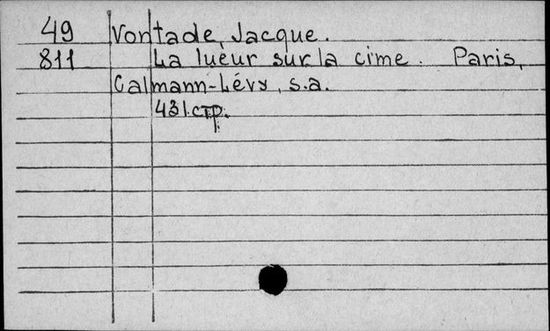 49 Vontade, Jacque.
811 La lueur sur la cime. Paris,
Calmann-Lévy, s.a.
431.стр.